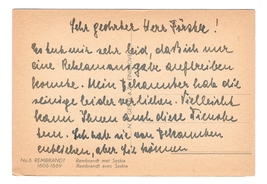 Sehr geehrter Herr Förster!
Es tut mir sehr leid, daß ich nur
eine Reklamausgabe auftreiben
konnte. Mein Bekannter hat die
seinige leider verliehen. Vielleicht
kann Ihnen auch diese Dienste
tun. Ich habe sie von Bekannten
entliehen, aber Sie können
No. 5 REMBRANDT
1606-1669
Rembrandt met Saskia
Rembrandt avec Saskia